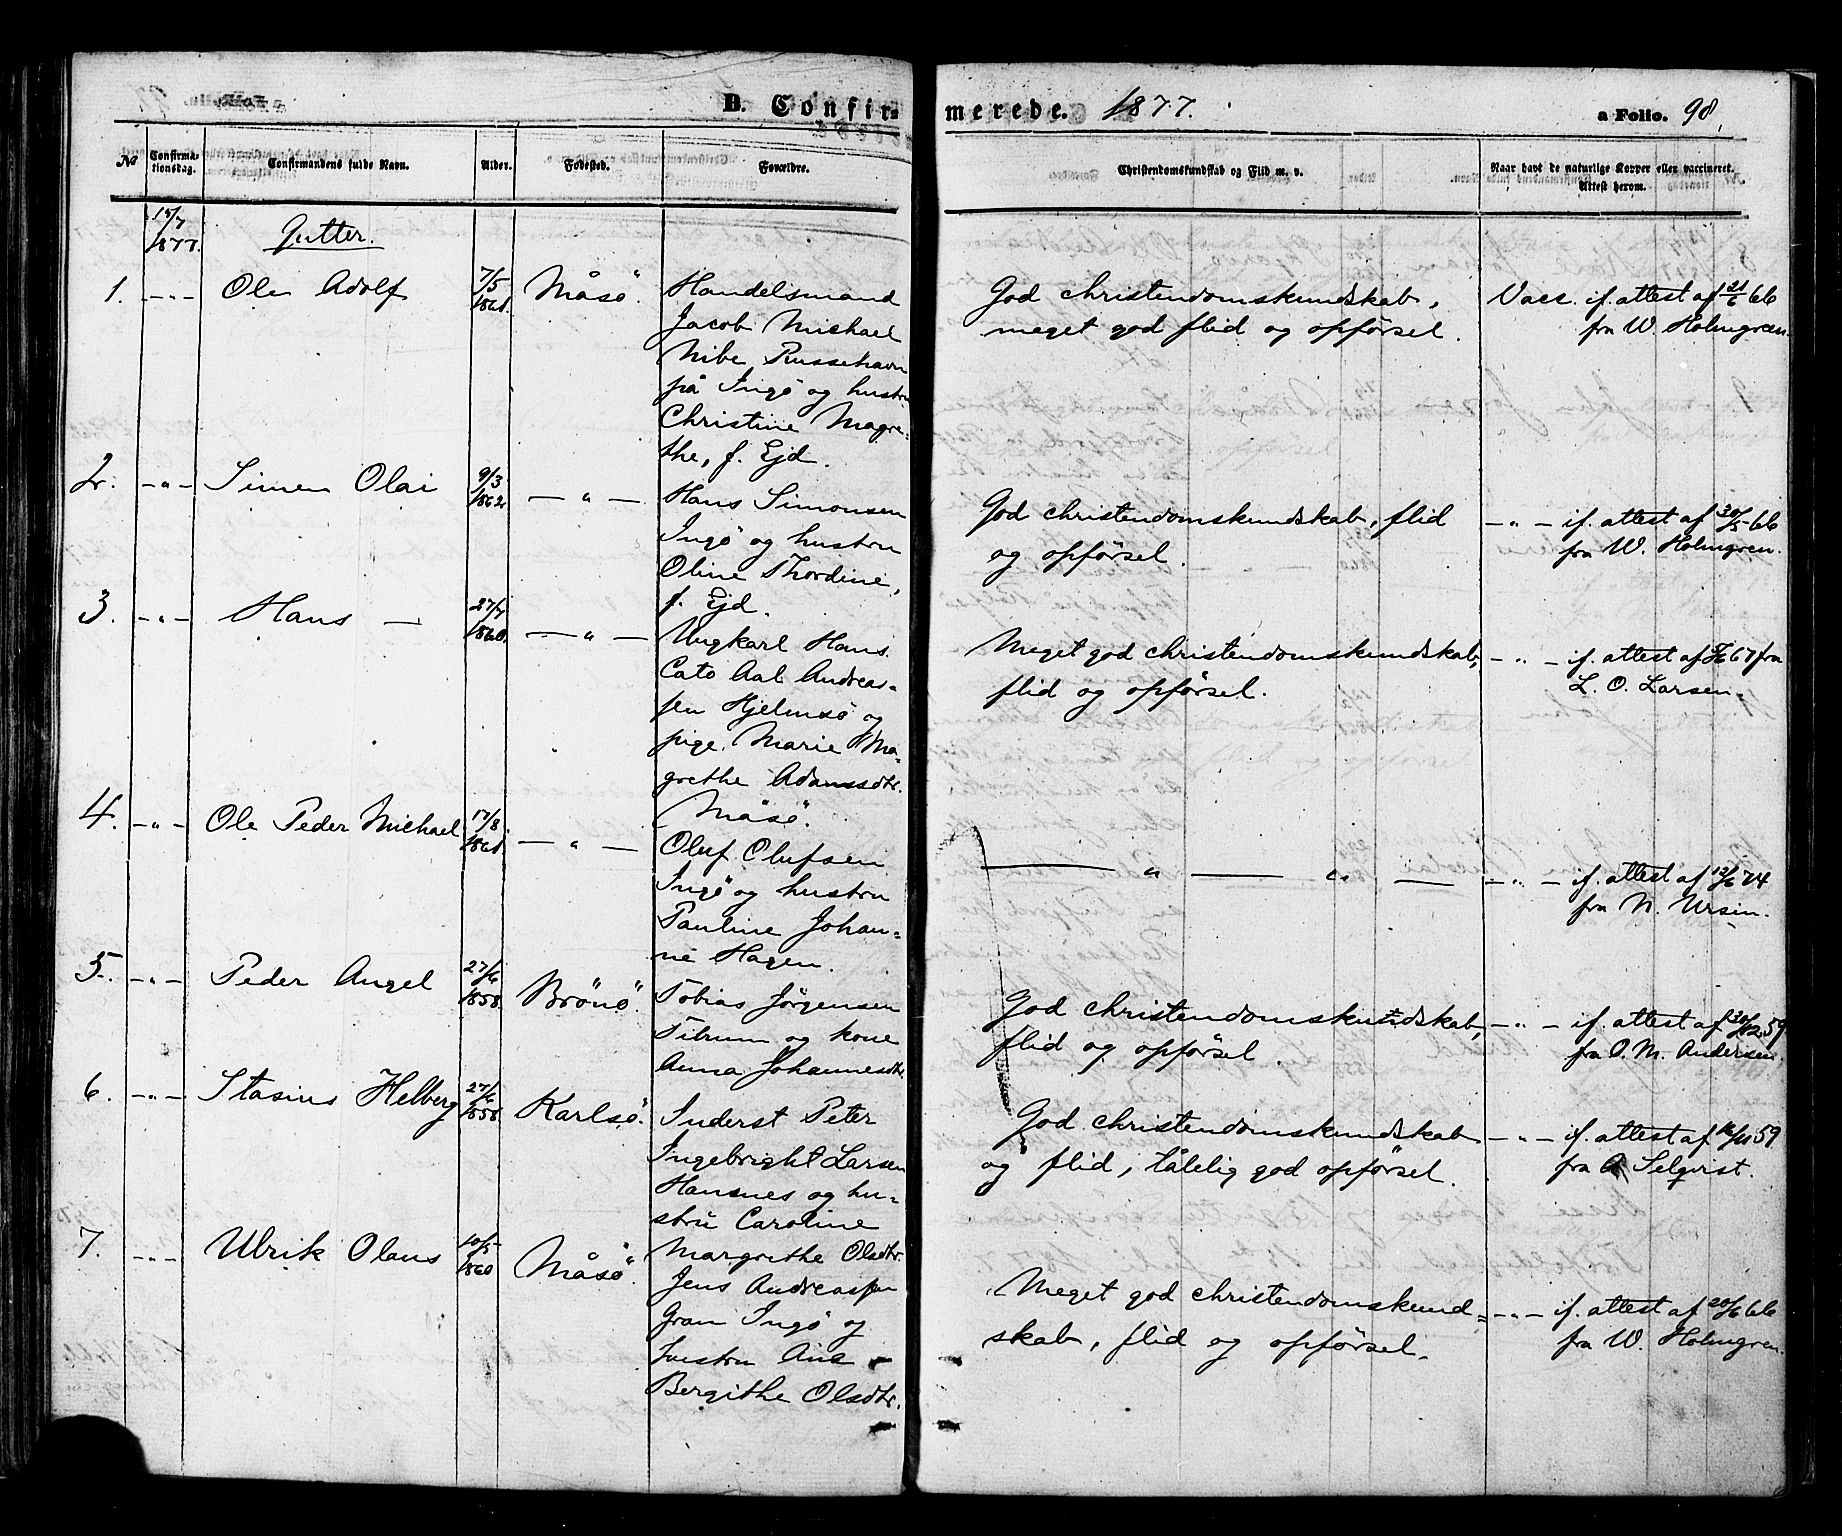 B. Confir-
merede. 1877.
a Folio. 98.
No
Confirmationsdag.
Confirmandens fulde Navn.
Alder.
Fødested.
Forældre.
Christendomskundskab og Flid m. v.
Naar havt de naturlige Kopper eller vaccineret.
Attest herom.
15/7
1877.
Gutter.
1. -"- Ole Adolf 7/5 1861. Måsö. Handelsmand
Jacob Michael
Nibe Russehavn
på Ingö og hustru
Christine Magre-
the, f. Ejd.
God christendomskundskab,
meget god flid og opförsel.
Vacc. if. attest af 21/6 66
fra W. Holmgreen.
2. -"- Simen Olai 9/3 1862. -"- Hans Simonsen
Ingö og hustru
Oline Thordine,
f. Ejd.
God christendomskundskab, flid
og opförsel.
-"- if. attest af 30/5 66
fra W. Holmgren.
3. -"- Hans - 27/7 1860. -"- Ungkarl Hans
Cato Aal Andreas-
sen Hjelmsö og
pige Marie Ma-
grethe Adamsdtr.
Måsö.
Meget god christendomskundskab,
flid og opförsel.
-"- if. attest af 67 fra
L. O. Larsen.
4. -"- Ole Peder Michael 17/8 1861. -"- Oluf Olufsen
Ingö og hustru
Pauline Johan-
ne Hagen.
-"- -"-
-"- if. attest af 12/6 74
fra N. Ursin.
5. -"- Peder Angel 27/6 1858. Brönö. Tobias Jörgensen
Tibrum og kone
Anna Johannesdtr.
God christendomskundskab,
flid og opförsel.
-"- if. attest af 30/12 59
fra O. M. Andersen.
6. -"- Stasius Helberg 27/6 1858. Karlsö. Inderst Peter
Ingebright Larsen
Hansnes og hu-
stru Caroline
Margrethe Olsdtr.
God christendomskundskab
og flid, tålelig god opförsel.
-"- if. attest af 16/11 59
fra A Selqvist.
7. -"- Ulrik Olaus 10/5 1860 Måsö. Jens Andreassen
Gran Ingö og
hustru Ane
Bergithe Olsdtr.
Meget god christendomskund-
skab, flid og opförsel.
-"- if. attest af 20/6 66
fra W. Holmgren.